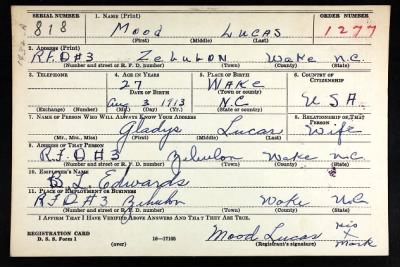 SERIAL NUMBER 1. NAME (Print) ORDER NUMBER
818 Mood Lucas 1277
(First) (Middle) (Last)
2. ADDRESS (Print)
R.F.D #3 Zebulon Wake N.C.
(Number and street or R. F. D. number) (Town) (County) (State)
3. TELEPHONE 4. AGE IN YEARS 5. PLACE OF BIRTH 6. COUNTRY OF CITIZENSHIP
27 Wake
DATE OF BIRTH (Town or county)
Aug 3 1913 N.C. U S A
(Exchange) (Number) (Mo.) (Day) (Yr.) (State or country)
7. NAME OF PERSON WHO WILL ALWAYS KNOW YOUR ADDRESS 8. RELATIONSHIP OF THAT PERSON
Gladys Lucas Wife
(Mr., Mrs., Miss) (First) (Middle) (Last)
9. ADDRESS OF THAT PERSON
R.F.D #3 Zebulon Wake N.C.
(Number and street or R. F. D. number) (Town) (County) (State)
10. EMPLOYER'S NAME
B. L. Edwards
11. PLACE OF EMPLOYMENT OR BUSINESS
R.F.D #3 Zebulon Wake N.C.
(Number and street or R. F. D. number) (Town) (County) (State)
I AFFIRM THAT I HAVE VERIFIED ABOVE ANSWERS AND THAT THEY ARE TRUE.
REGISTRATION CARD
D. S. S. Form 1 (over) 16—17105 Mood Lucas his x Mark
(Registrant's signature)